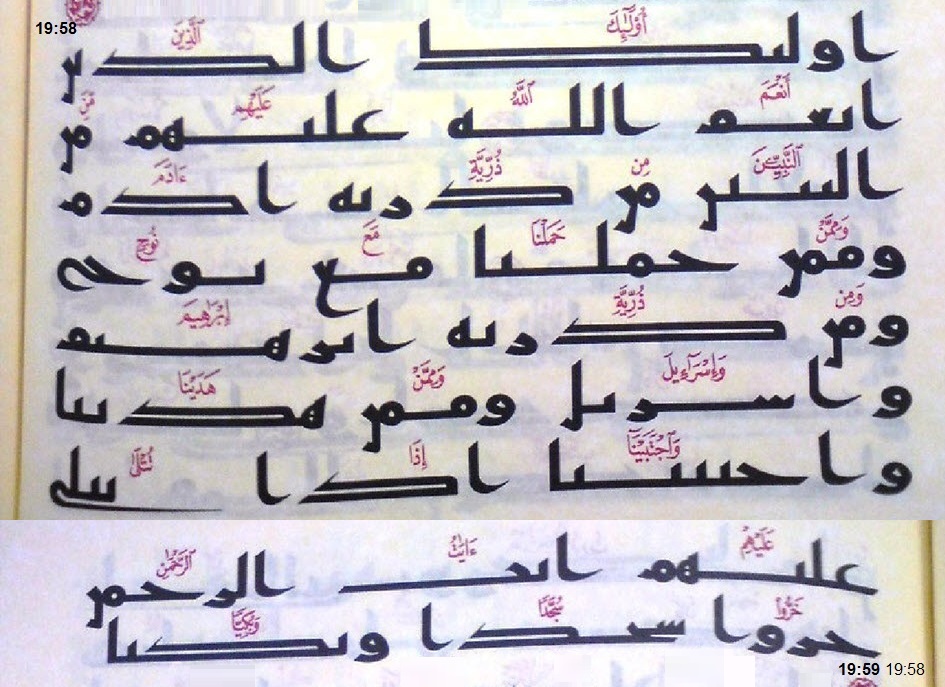 19:58
أُوْلَٰٓئِكَ ٱلَّذِينَ
اوليك الذين
أَنْعَمَ ٱللَّهُ عَلَيْهِم مِّنَ
انعم الله عليهم من
ٱلنَّبِيِّـۧنَ مِن ذُرِّيَّةِ ءَادَمَ
النبين من ذرية ادم
وَمِمَّنْ حَمَلْنَا مَعَ نُوحٍ
وممن حملنا مع نوح
وَمِن ذُرِّيَّةِ إِبْرَٰهِيمَ
ومن ذرية ابرهيم
وَإِسْرَٰٓءِيلَ وَمِمَّنْ هَدَيْنَا
واسريل وممن هدينا
وَٱجْتَبَيْنَآ إِذَا تُتْلَىٰ
واجتبينا اذا تتلى
عَلَيْهِمْ ءَايَٰتُ ٱلرَّحْمَٰنِ
عليهم ايت الرحمن
خَرُّوا۟ سُجَّدًا وَبُكِيًّا
خروا سجدا وبكيا
19:59 19:58